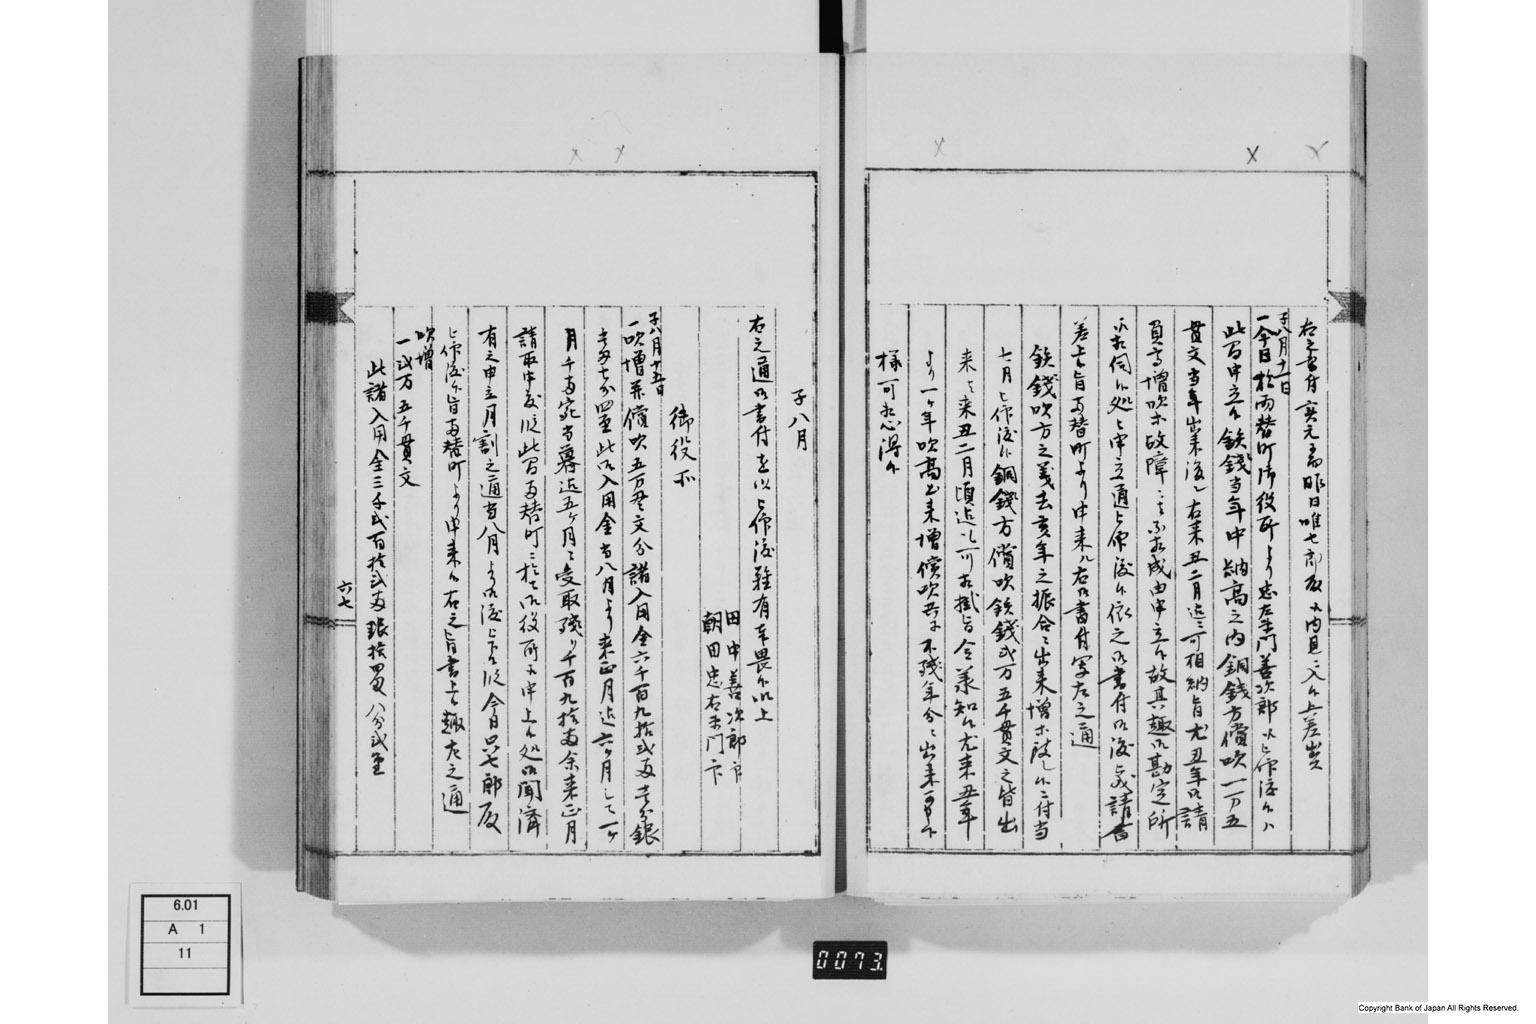 右之書付寅之高昨日唯七郎殿ゟ内見ニ入候上差出ス
子八月十一日
一今日於両替町御役所より忠左衛門善次郎江被仰渡候ハ
此間申立候鉄銭当年中納高之内銅銭方償吹一万五
貫文当年出来後レ右来丑二月迄ニ可相納旨尤丑年御請
員高増吹ニ故障ニ不相成由申立候故其趣御勘定所
江相伺候処申立通被仰渡候依之御書付御渡シ請書
差上候旨両替町より申来ル右御書付写左之通
鉄銭吹方之義去亥年之振合ニ出来増相成候ニ付当
七月被仰渡候銅銭方償吹鉄銭弐万五千貫文之皆出
来之来丑二月頃迄ニ可相掛旨令承知候尤来丑年
より一ヶ年吹高出来増償吹共不残年分ニ出来可申
様可相心得候
子八月
右之通御書付を以被仰渡難有奉畏候以上
田中善次郎印
朝田忠右衛門印
御役所
子八月十五日
一吹増并償吹五万貫文分諸入用金六千百九拾弐両壱分銀
壱匁七分四厘此御入用金当八月より来正月迄六ヶ月ニして一ヶ
月千両宛当暮迄五ヶ月ニ受取残り千百九拾両余来正月
請取申度段此間両替町ニ於て御役所江申上候処御聞済
有之申立之月割之通当八月より御渡被下候段今日只七郎殿
被仰渡候旨両替町より申来候右之旨書上候趣左之通
吹増
一弐万五千貫文
此諸入用金三千弐百拾弐両銀拾四匁八分弐厘
六七
6.01
A 1
11
0073.
Copyright Bank of Japan All Rights Reserved.